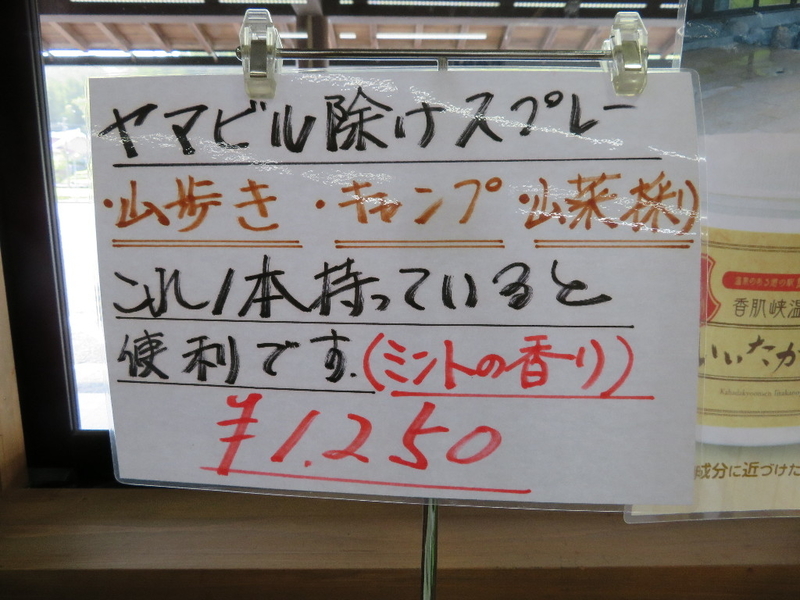 ヤマビル除けスプレー
・山歩き ・キャンプ ・山菜採り
これ1本持っていると
便利です.(ミントの香り)
¥1.250
香肌峡温
いいたか
成分に近づけた